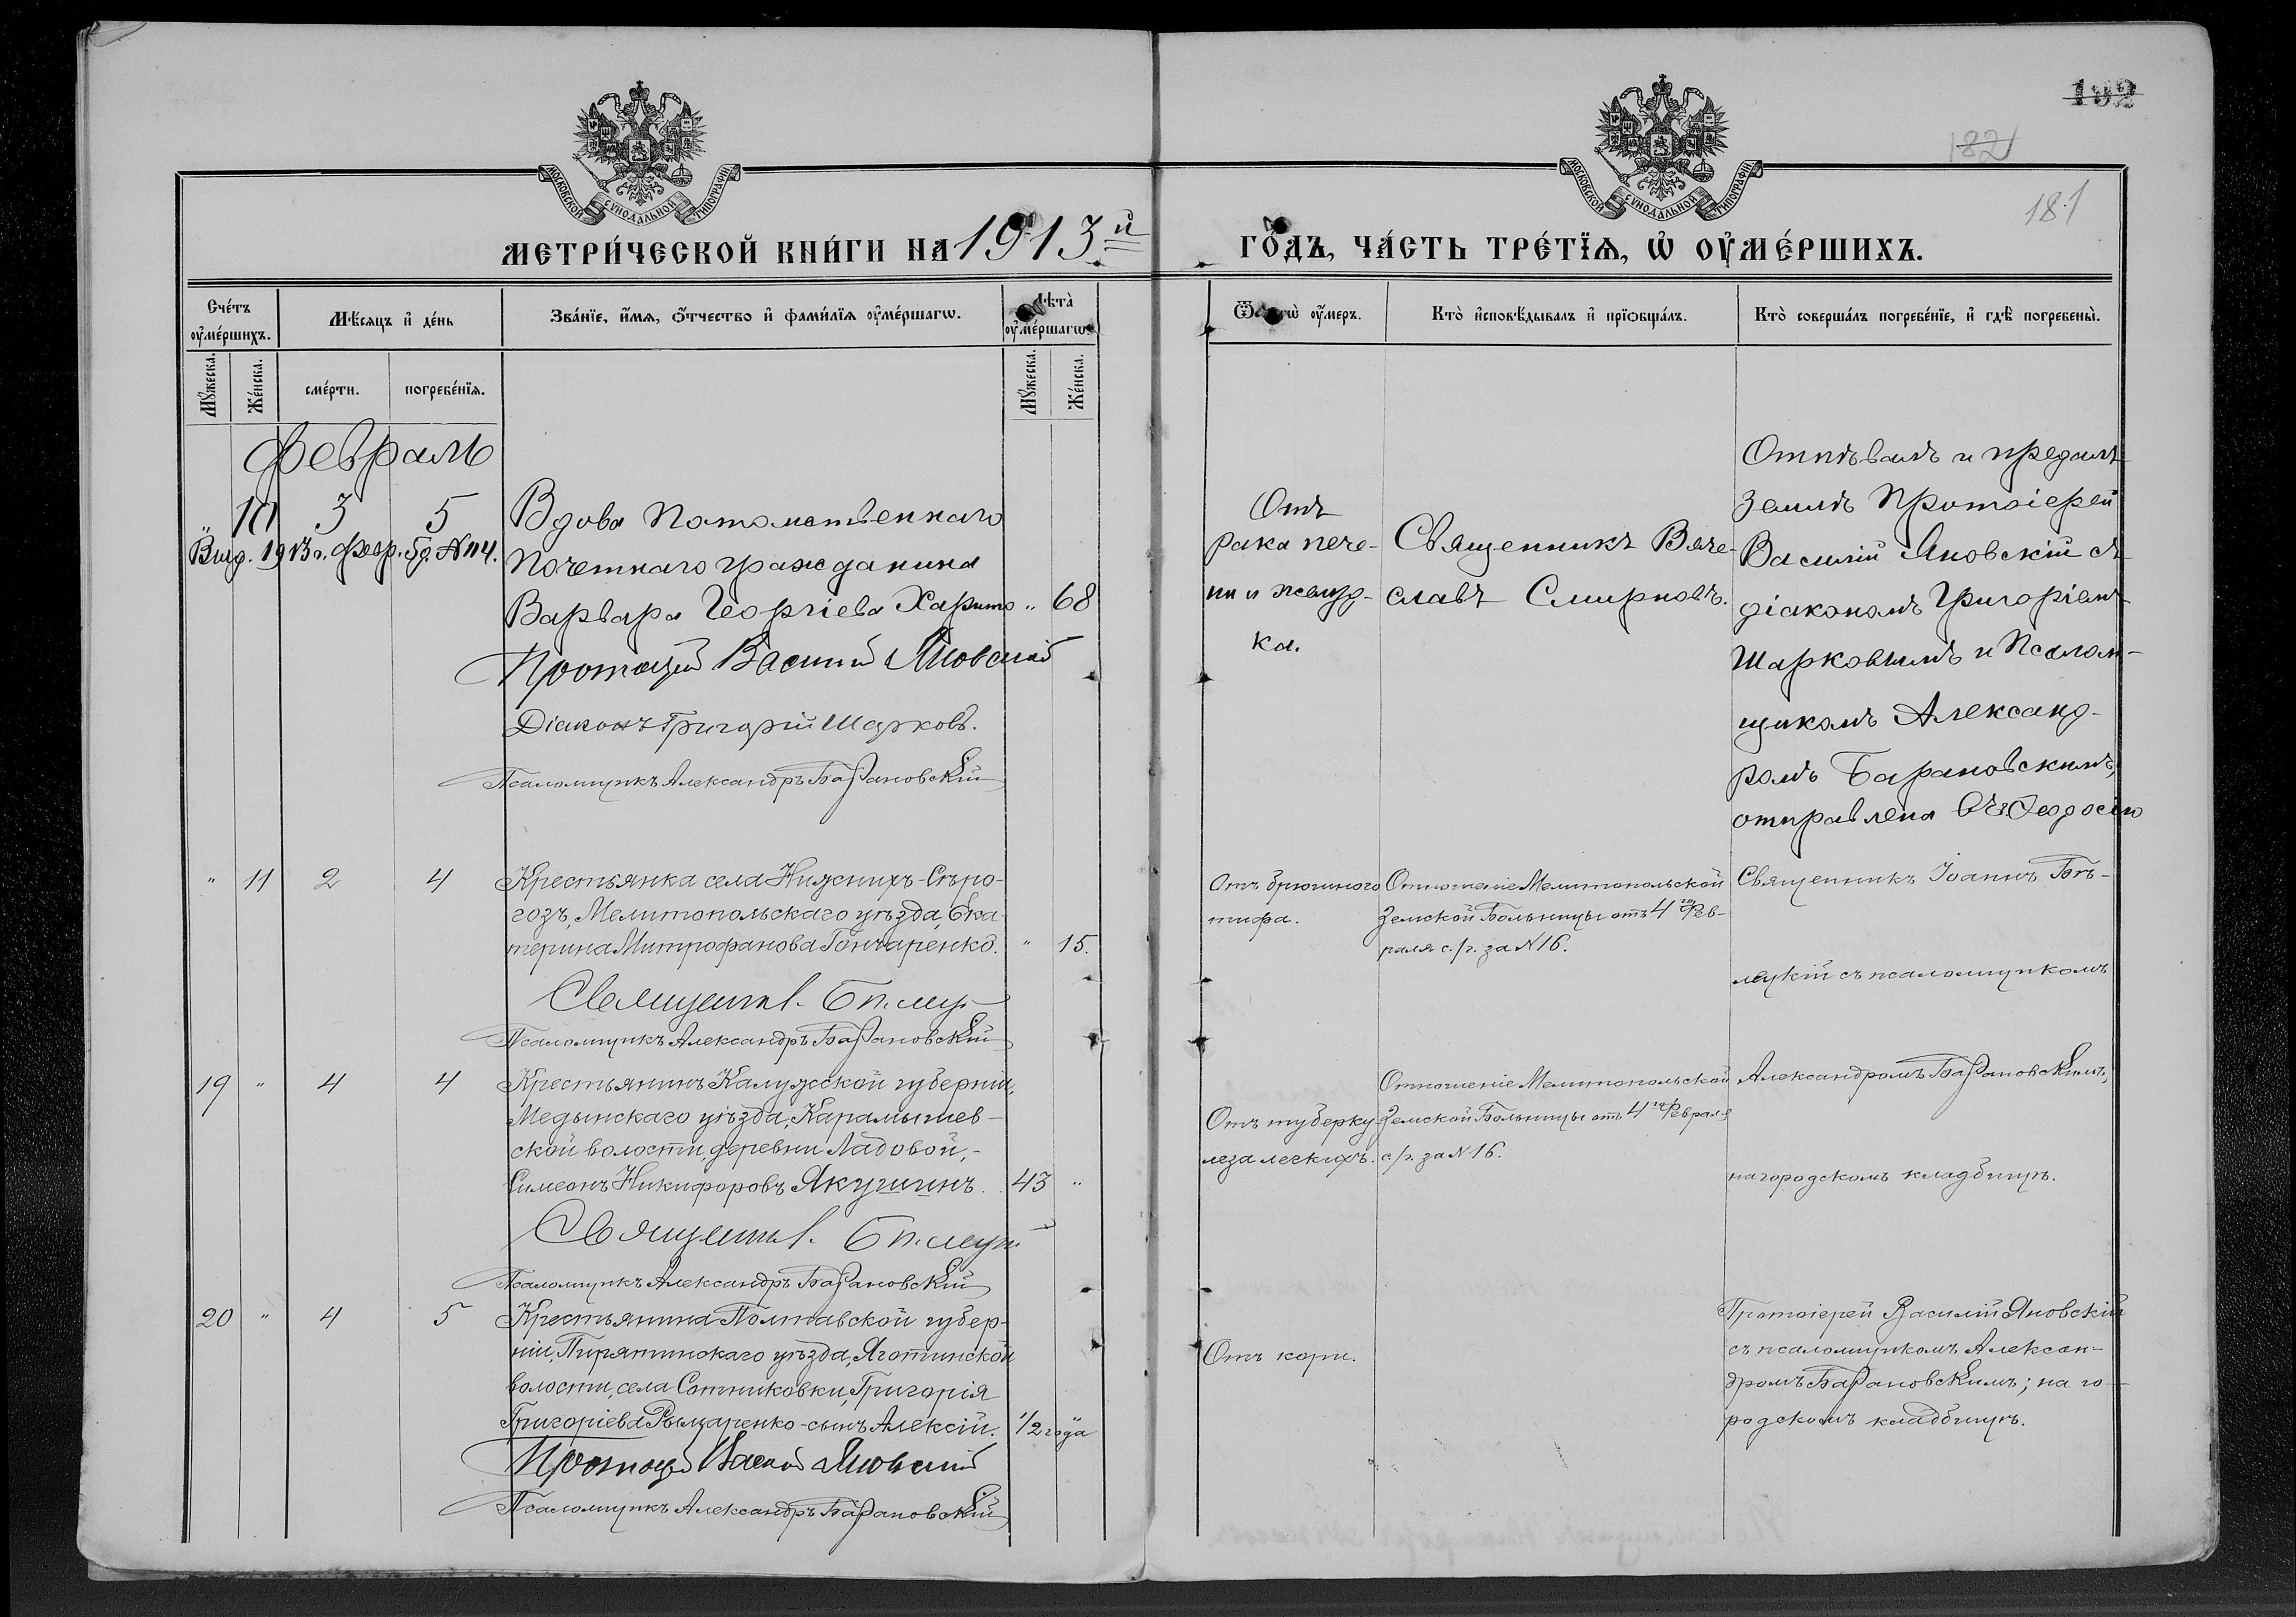 192
182
181
МОСКОВСКОЙ СѴНОДАЛЬНОЙ ТИПОГРАФІИ.
МОСКОВСКОЙ СѴНОДАЛЬНОЙ ТИПОГРАФІИ.
МЕТРИ́ЧЕСКОЙ КНИ́ГИ НА 1913й ГО́ДЪ, ЧА́СТЬ ТРЕ́ТЇѦ, Ѡ҆ ОУ҆МЕ́РШИХЪ.
Сче́тъ оу҆ме́ршихъ.
Мѣ́сяцъ и҆ де́нь
Зва́нїе, и҆́мѧ, ѻ҆́тчество и҆ фами́лїѧ оу҆ме́ршагѡ.
Лѣ́та̀ оу҆ме́ршагѡ
Ѿ чегѡ̀ оу҆́меръ.
Кто̀ и҆сповѣ́дывалъ и҆ прїѻбща́лъ.
Кто̀ соверша́лъ погребе́нїе, и҆ гдѣ̀ погребены̀.
Мꙋ́жеска.
Же́нска.
сме́рти.
погребе́нїѧ.
Мꙋ́жеска.
Же́нска.
Февраль
" 10 3 5
Выд. 1913 г. февр. 5 д. №114.
Вдова Потомственнаго
Почетнаго гражданина
Варвара Георгіева Харито " 68
Протоіерей Василій Яновскій
Діаконъ Григорій Шарковъ.
Псаломщикъ Александръ Барановскій
Отъ
рака пече-
ни и желуд-
ка.
Священникъ Вяче-
славъ Смирновъ.
Отпѣвалъ и предалъ
землѣ Протоіерей
Василій Яновскій съ
діакономъ Григоріемъ
Шарковымъ и Псалом-
щикомъ Александ-
ромъ Барановскимъ,
отправлена въ г. Ѳеодосію
" 11 2 4
Крестьянка села Нижнихъ-Сѣро-
гозъ, Мелитопольскаго уѣзда, Ека-
терина Митрофанова Гончаренко. " 15.
Псаломщикъ Александръ Барановскій
Отъ брюшного
тифа.
Отношеніе Мелитопольской
Земской Больницы отъ 4го Фев-
раля с./г. за №16.
Священникъ Іоаннъ Бѣ-
лецкій съ псаломщикомъ
19 " 4 4
Крестьянинъ Калужской губерніи,
Медынскаго уѣзда, Карамышев-
ской волости, деревни Ладовой,-
Симеонъ Никифоровъ Якушинъ. 43 "
Псаломщикъ Александръ Барановскій
Отъ туберку-
леза легкихъ.
Отношеніе Мелитопольской
Земской Больницы отъ 4го Февраля
с./г. за №16.
Александромъ Барановскимъ,
на городскомъ кладбищѣ.
20 " 4 5
Крестьянина Полтавской губер-
ніи, Пирятинскаго уѣзда, Яготинской
волости, села Сотниковки, Григорія
Григоріева Рымаренко - сынъ Алексій. 1/2 года
Протоіерей Василій Яновскій
Псаломщикъ Александръ Барановскій
Отъ кори.
Протоіерей Василій Яновскій
съ псаломщикомъ Алексан-
дромъ Барановскимъ; на го-
родскомъ кладбищѣ.